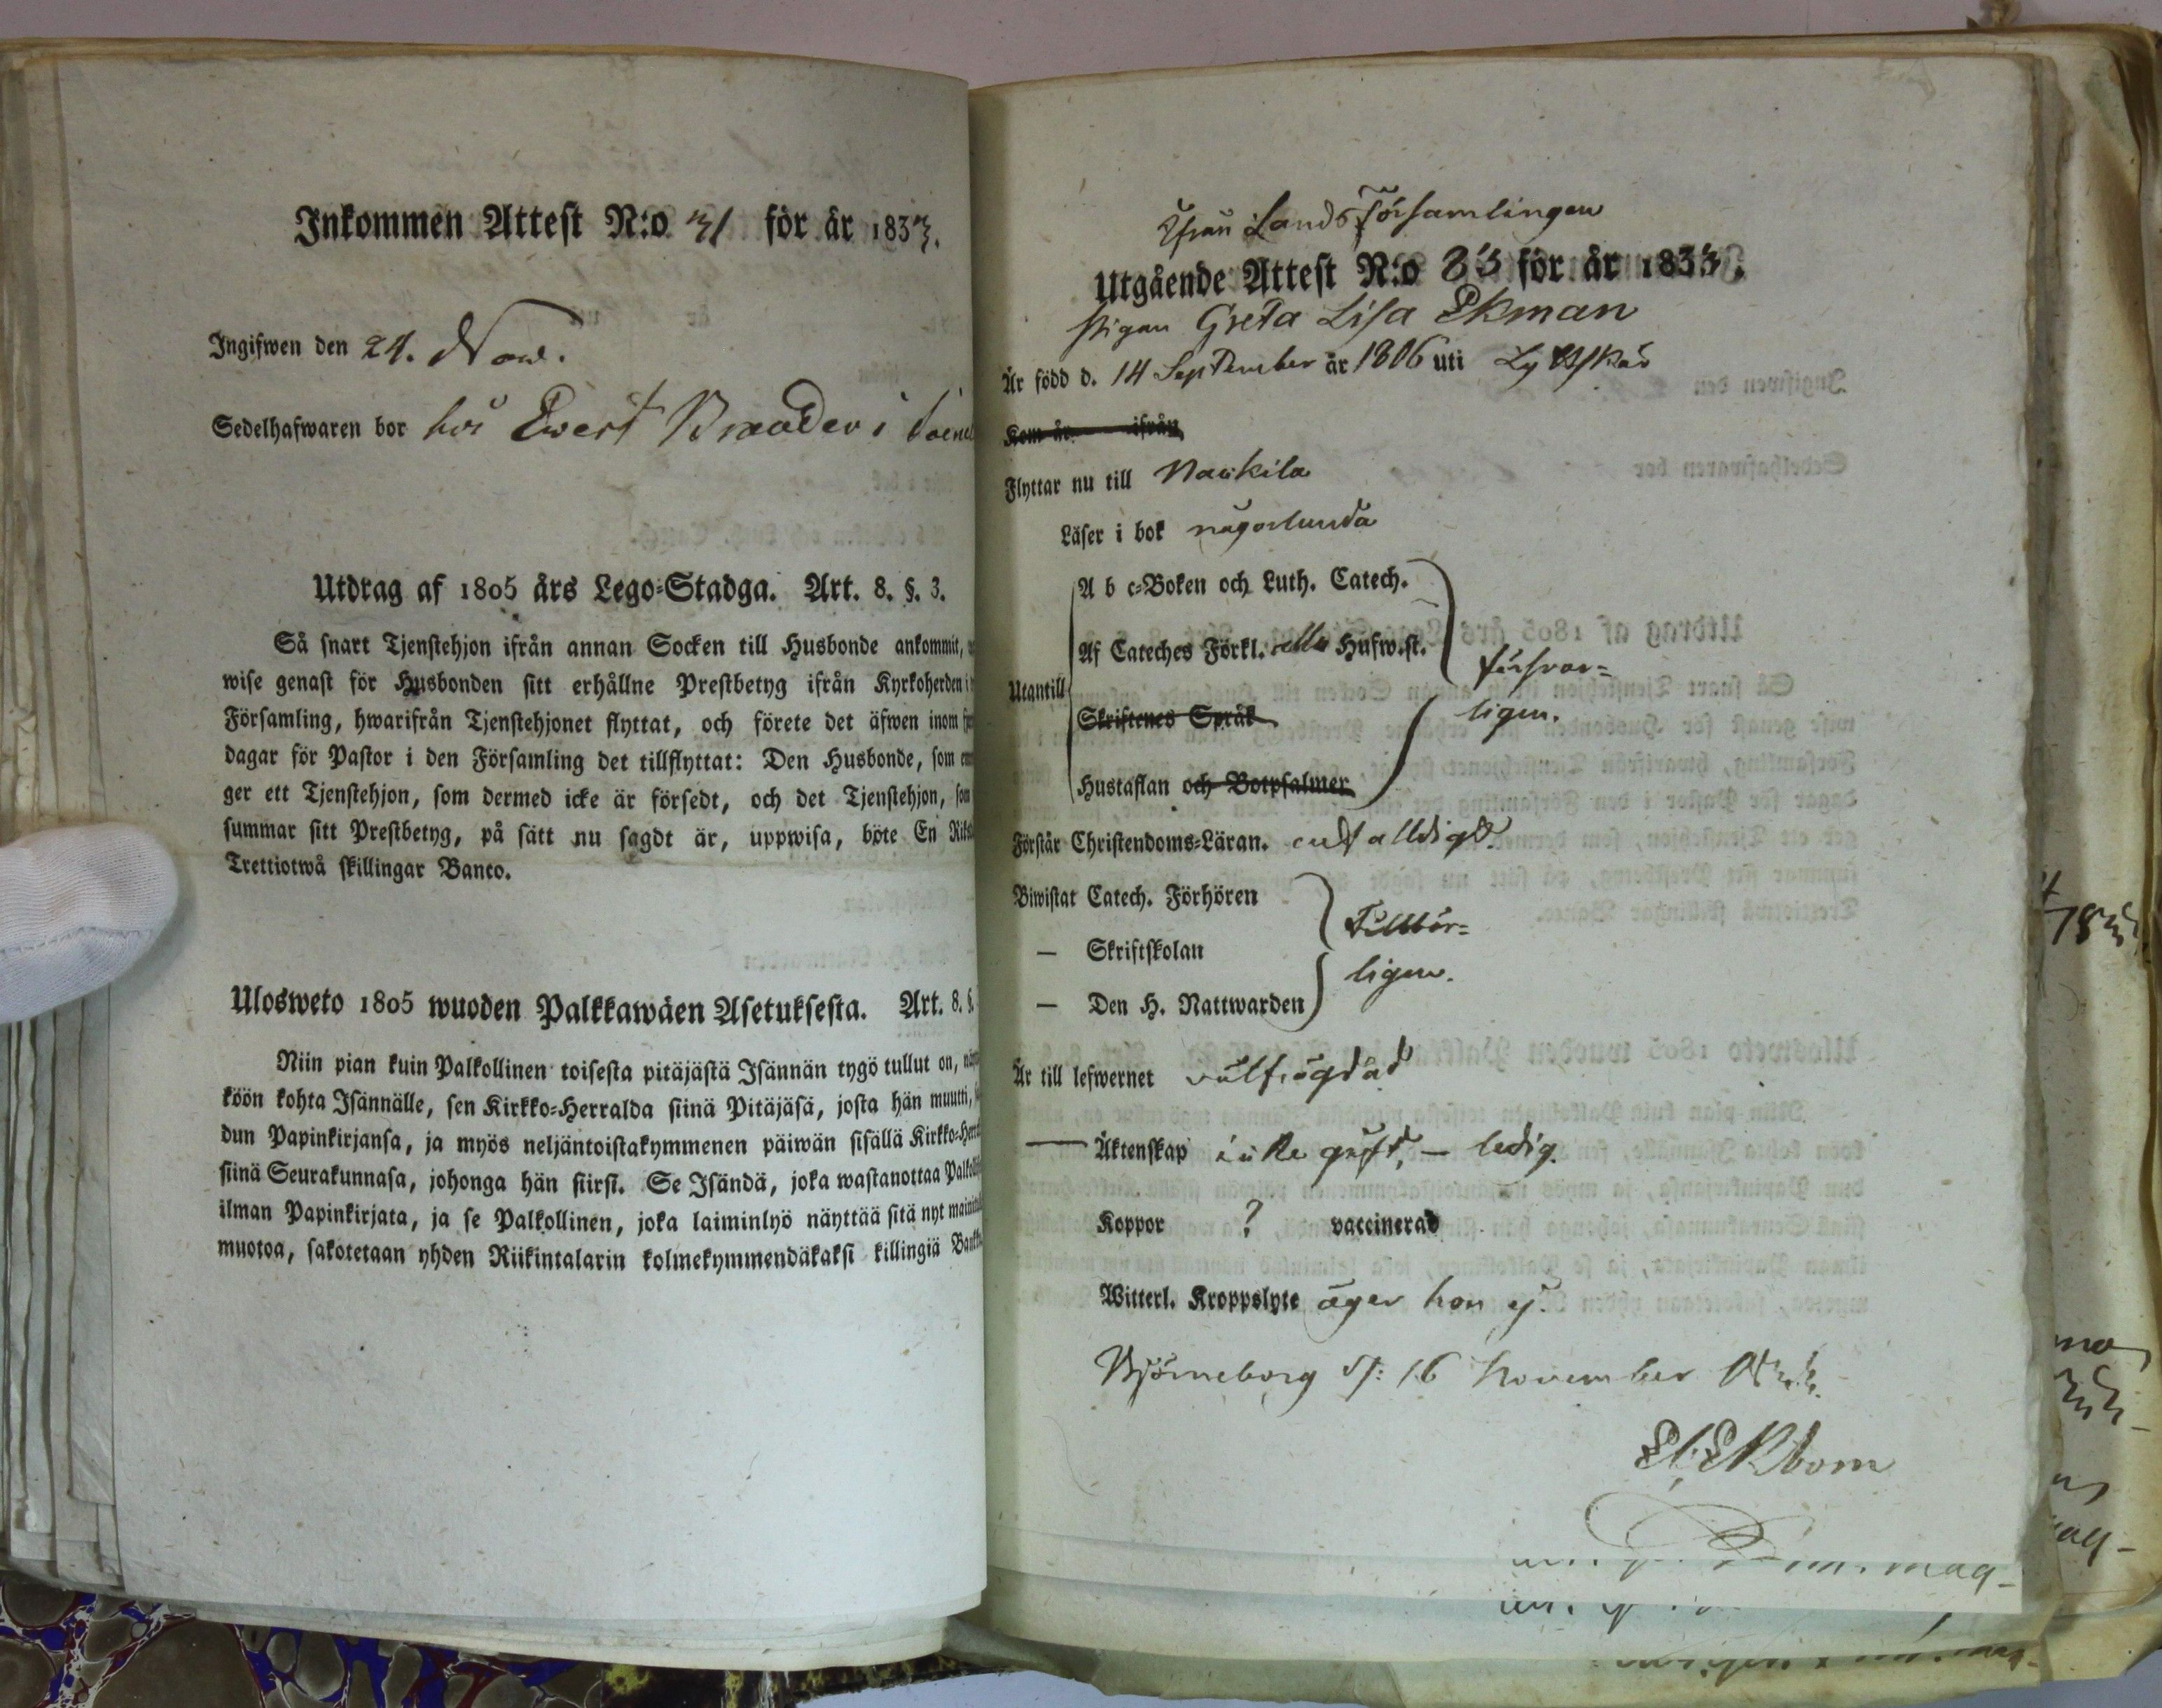 Inkommen Attest N:o 31 för år 1833.
Ingifwen den 24. Nov.
Sedelhafwaren bor hos Ewert Brander i
Utdrag af 1805 års Lego-Stadga. Art. 8. §. 3.
Så snart Tjenstehjon ifrån annan Socken till Husbonde ankommit,
wise genast för Husbonden sitt erhållne Prestbetyg ifrån Kyrkoherden i
Församling, hwarifrån Tjenstehjonet flyttat, och förete det äfwen inom
dagar för Pastor i den Församling det tillflyttat: Den Husbonde, som
ger ett Tjenstehjon, som dermed icke är försedt, och det Tjenstehjon, som
summar sitt Prestbetyg, på sätt nu sagdt är, uppwisa, böte En
Trettiotwå skillingar Banco.
Ulosweto 1805 wuoden Palkkawäen Asetuksesta. Art. 8. §.
Niin pian kuin Palkollinen toisesta pitäjästä Isännän tygö tullut on,
köön kohta Isännälle, sen Kirkko-Herralda siinä Pitäjäsä, josta hän muutti,
dun Papinkirjansa, ja myös neljäntoistakymmenen päiwän sisällä Kirkko-
siinä Seurakunnasa, johonga hän siirsi. Se Isändä, joka wastanottaa
ilman Papinkirjata, ja se Palkollinen, joka laiminlyö näyttää sitä nyt
muotoa, sakotetaan yhden Riikintalarin kolmekymmendäkaksi killingiä
Ifrån Landsförsamlingen
Utgående Attest N:o 83 för år 1833.
Pigan Greta Lisa Ekman
Är född d. 14 September år 1806 uti
Kom år ifrån
Flyttar nu till Nackila
Läser i bok någorlunda
A b c-Boken och Luth. Catech.
Af Cateches Förkl. alla Hufw.st.
försvar-
Utantill
Skriftenes Språk
ligen.
Hustaflan och Botpsalmer
Förstår Christendoms-Läran. enfalldigt.
Biwistat Catech. Förhören
Tillbör-
— Skriftskolan
ligen.
— Den H. Nattwarden
Är till lefwernet välfrägdad
— Äktenskap icke gift, — ledig.
Koppor ? vaccinerad
Witterl. Kroppslyte äger hon ej.
Björneborg d: 16 November 1833.
Ekbom